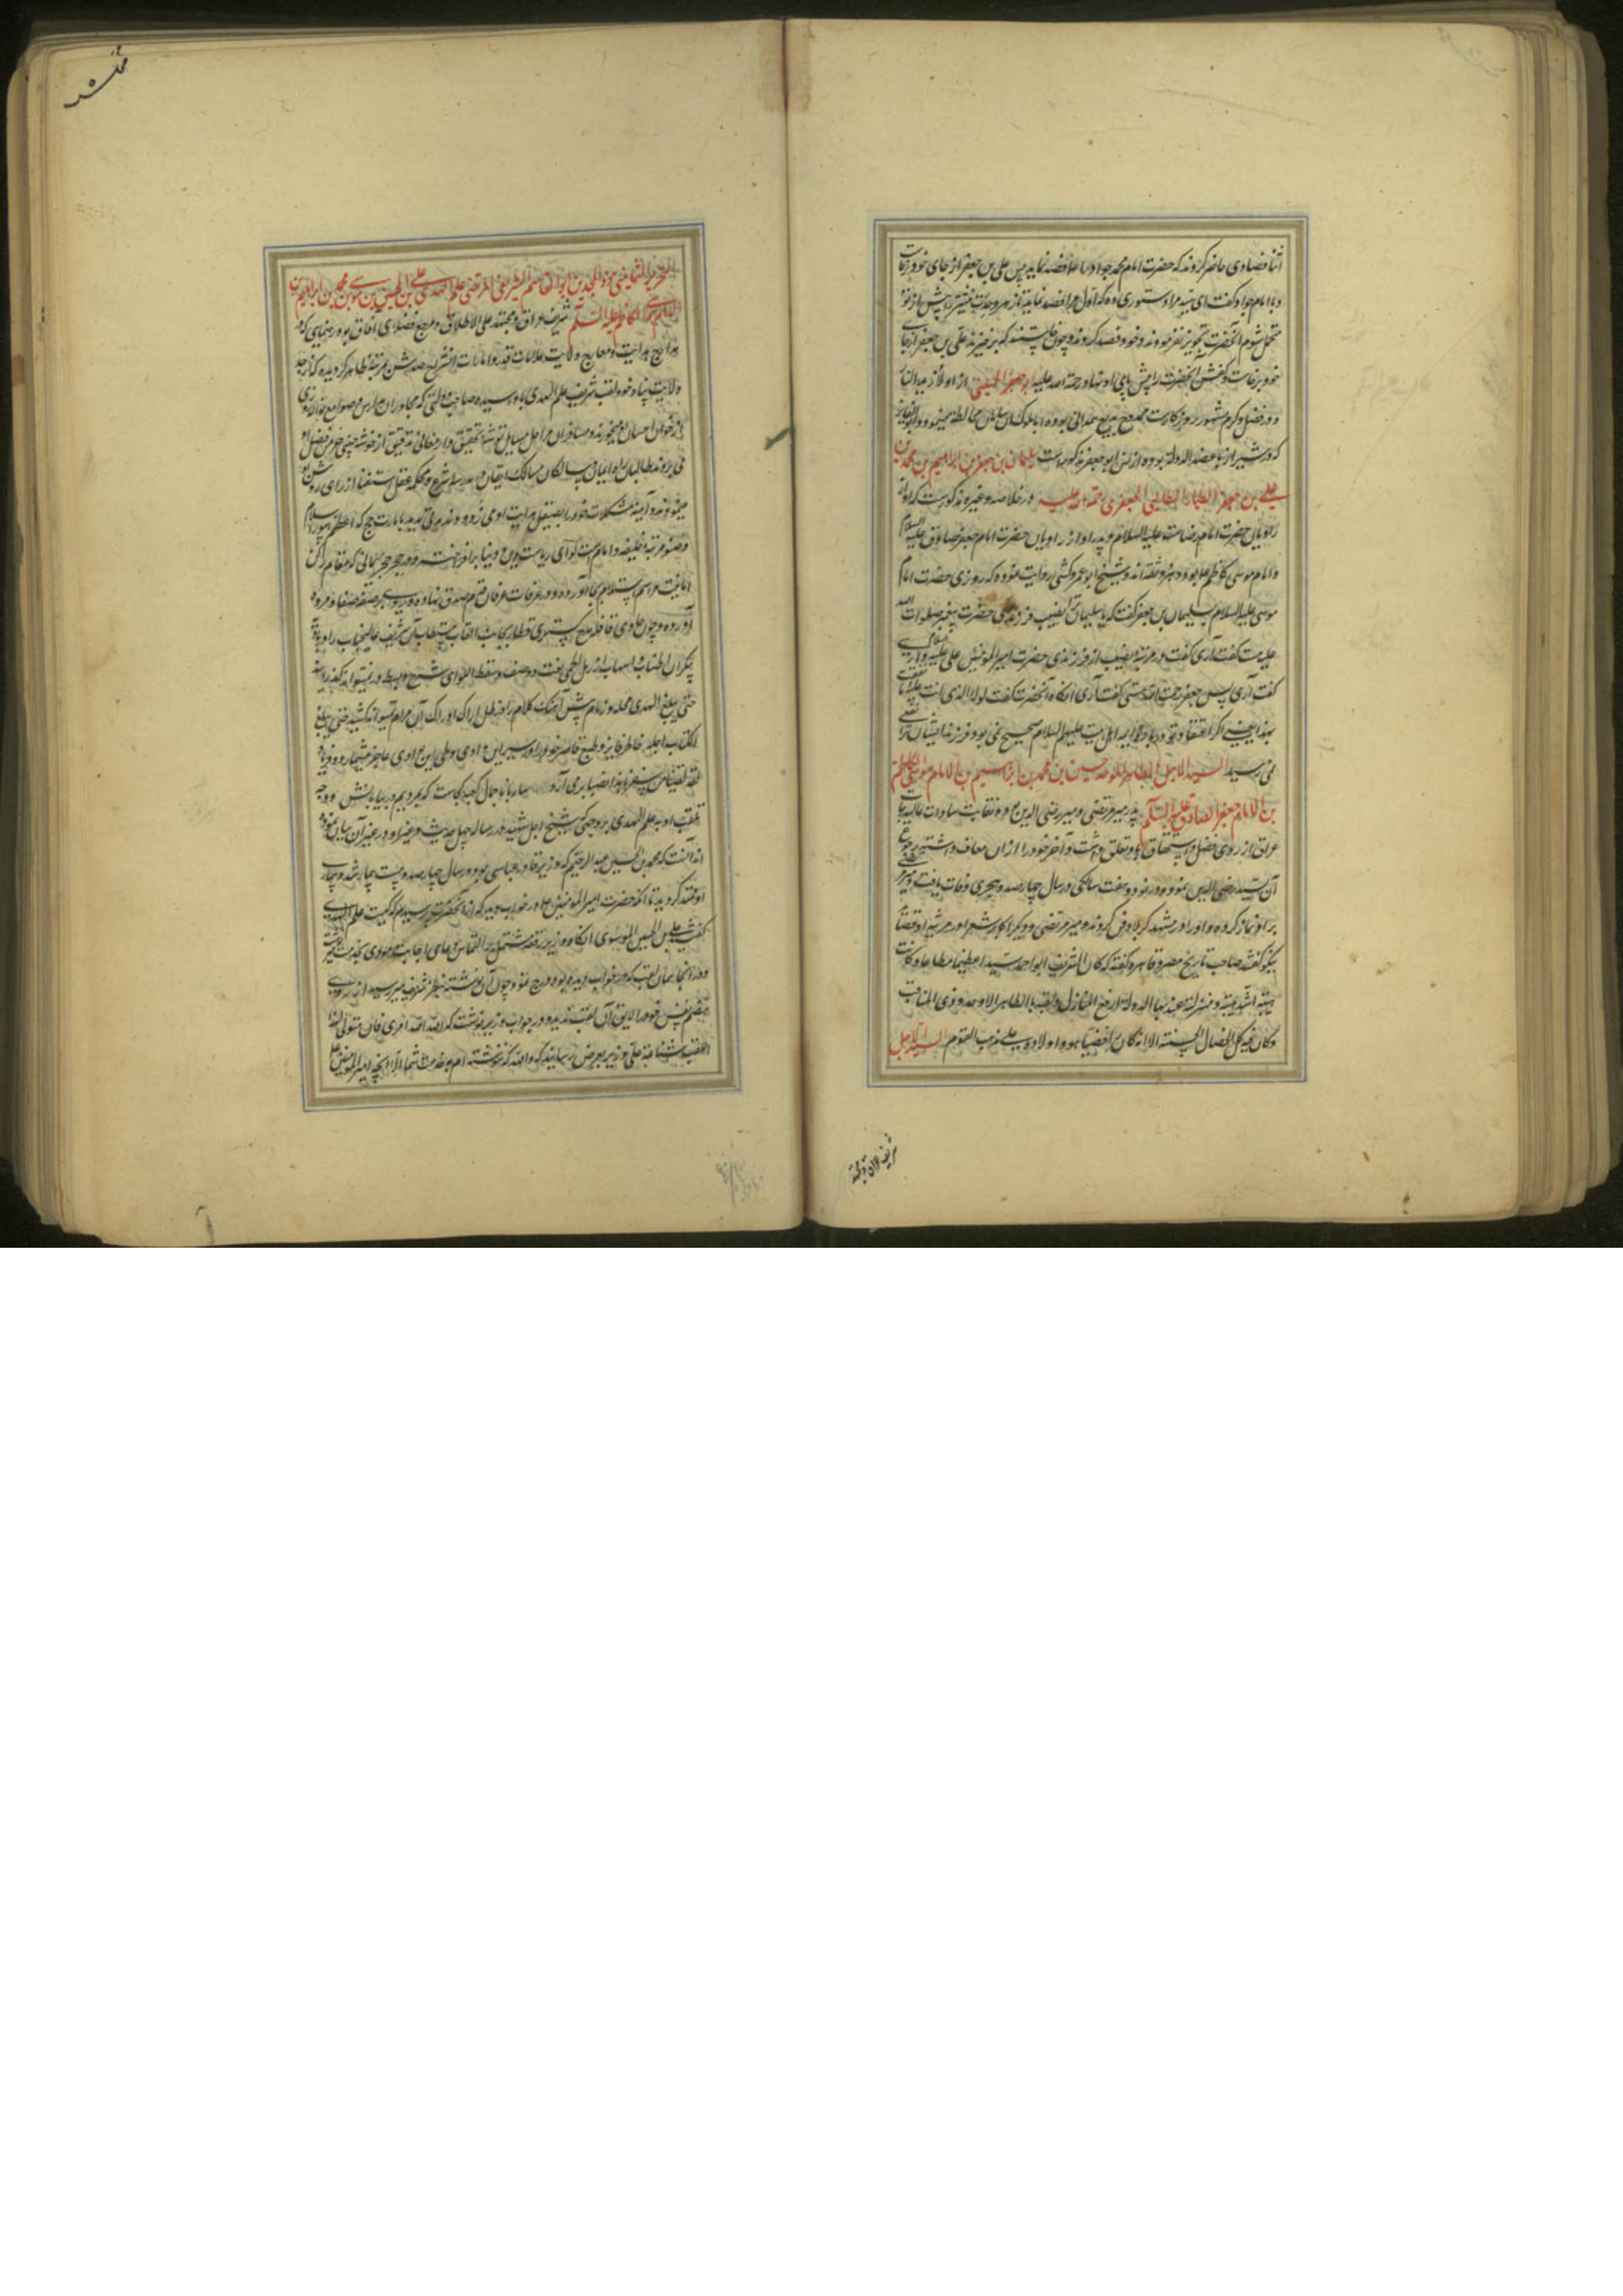 اثنا فصادی حاضر کردند که حضرت امام محمد جواد را علا فصد نماید پس علی بن جعفر از جای خود برخاست
و با امام جواد گفت ای سید مرا دستوری ده که اول مرا فصد نماید تا زهر و حدت نیشتر را پیش از تو
متحمل شوم آنحضرت تجویز نفرمودند و خود فصد کردند و چون خواستند که برخیزند علی بن جعفر از جای
خود برخاست و کفش آنحضرت را پیش پای او نهاد رحمة الله علیه ابو جعفر الحسینی از اولاد زید النار
و در فضل و کرم مشهور روزگار است ممدوح بدیع همدانی بوده با ملوک آل سامان مخالطه مینمود و ابو
که در شیراز با عضد الدوله بوده از نسل ابو جعفر مذکور است سلیمان بن جعفر بن ابراهیم بن محمد بن
علی بن جعفر الطیار الطالبی الجعفری رحمة الله علیه در خلاصه و غیره مذکور است که او از
راویان حضرت امام رضاست علیه السلام و پدر او از راویان حضرت امام جعفر صادق علیه السلام
و امام موسی کاظم علا بود و هر دو ثقه اند و شیخ ابو عمرو کشی روایت نموده که روزی حضرت امام
موسی علیه السلام بسلیمان بن جعفر گفت که یا سلیمان ترا نصیب فرزندی حضرت پیغمبر صلوات الله
علیه هست گفت آری گفت دو مرتبه نصیب از فرزندی حضرت امیر المومنین علی علیه السلام داری
گفت آری پس جعفر جهت الله هستی گفت آری آنگاه آنحضرت گفت لولا الذی انت علیه ما انتفعت
بهذا یعنی اگر اعتقاد تو درباره ائمه اهل بیت علیهم السلام صحیح نمی بود فرزند ایشان ترا نفعی
نمی رسید السید الاجل الطاهر الاوحد حسین بن محمد بن ابراهیم بن الامام موسی الکاظم
بن الامام جعفر الصادق علیه السلام پدر میر مرتضی و میر رضی الدین بود و نقابت سادات عالیدرجات
عراق از روی فضل و استحقاق باو تعلق داشت و آخر خود را از آن معاف داشته رجوع
آن بسید رضی الدین نمود و در نود و هفت سالگی در سال چهارصد هجری وفات یافت و میر مرتضی
بر او نماز کرده و او را در مشهد کربلا دفن کردند و میر مرتضی و دیگر اکابر شعرا در مرثیه او قصاید
نیکو گفتند صاحب تاریخ مصر و قاهره گفته که کان الشریف ابو احمد سیدا عظیما مطاعا و کانت
هیبته اشد هیبة و منزلته عند بهاء الدوله ارفع المنازل و لقبه بالطاهر الاوحد و ذوی المناقب
و کان فیه کل الخصال الحسنة الا انه کان رافضیا هو و اولاده علی مذهب القوم السید الاجل
شریف عراق و مجتهد
الثمانینی ذو المجدین ابو القاسم الشریف المرتضی علم الهدی علی بن الحسین بن موسی بن محمد بن ابراهیم بن
الامام موسی الکاظم علیه السلام شریف عراق و مجتهد علی الاطلاق و مرجع فضلای آفاق بود رهنمایی که در
مدارج هدایت و معارج ولایت علامات قدر و امارات انشراح صدرش بمرتبه ظاهر گردیده که از جد
ولایت پناه خود لقب شریف علم الهدی باو رسیده صاحب دولتی که مجاوران مدارس و صوامع نواله روزی
از خوان احسان او میخورند و مسافران مراحل مسایل توشه تحقیق و ارمغانی تدقیق از خوشه چینی خرمن فضل او
می بردند طالبان راه ایمان و سالکان مسالک ایقان در مدرسه شرع و محکمه عقل استفتا از رای روشن او
مینمودند و آینه مشکلات خود را بصیقل هدایت او می زدودند مدتی مدید بامارت حج که اعظم امور اسلام
و صنو مرتبه خلیفه و امام است لوای ریاست دین و دنیا برافراخت و در حجر حجر یمانی که مقام رکن
ایمانیست مراسم استلام بجا آورده و در عرفات عرفان قدم صدق نهاده و بر صفه صفا و مروه
آورده و چون حاوی قافله مدح گستری قطار نجایب القاب مستطاب آن شریف عالیجناب را در بادیه
بیکران اطناب و اسهاب از رمل الحمی نعت و وصف و سقط اللوای شرح و بسط در نمیتواند گذرانید
حتی یبلغ الهدی محله و زمام شتر آهنگ کلام را از طول ادراک آن مرام نمیتواند کشید حتی یبلغ
الکتاب اجله خاطر فایز و طبع قاصر خود را در سیر این وادی و طی این بوادی عاجز میشمارد و فریاد
لقد لقینا من سفرنا هذا نصبا بر می آرد ساربانا جمال کعبه کجاست که بمردیم در بیابانش و وجه
تلقب او به علم الهدی بر وجهی که شیخ اجل شهید در رساله چهل حدیث و غیر او در غیر آن بیان نموده
اند آنست که محمد بن الحسین عبد الرحیم که وزیر قادر عباسی بود در سال چهارصد و بیست بیمار شد و بیماری
او ممتد گردید تا آنکه حضرت امیر المومنین علا در خواب دید که از آنحضرت پرسیدم که کیست علم الهدی
گفت علی بن الحسین الموسوی آنگاه وزیر رقعه مشتمل بر التماس دعای با اجابت مقرون بخدمت میر نوشت
و در آنجا همان لقب که در خواب دیده بود درج نمود چون آن نوشته بنظر شریف میر رسید از روی
هضم نفس خود را لایق آن لقب ندید و در جواب وزیر نوشت که الله الله فی امری فان قبولی لهذا
اللقب شناعة علی وزیر بعرض رسانید که والله که ننوشته ام بخدمت شما الا آنچه امیر المومنین علا